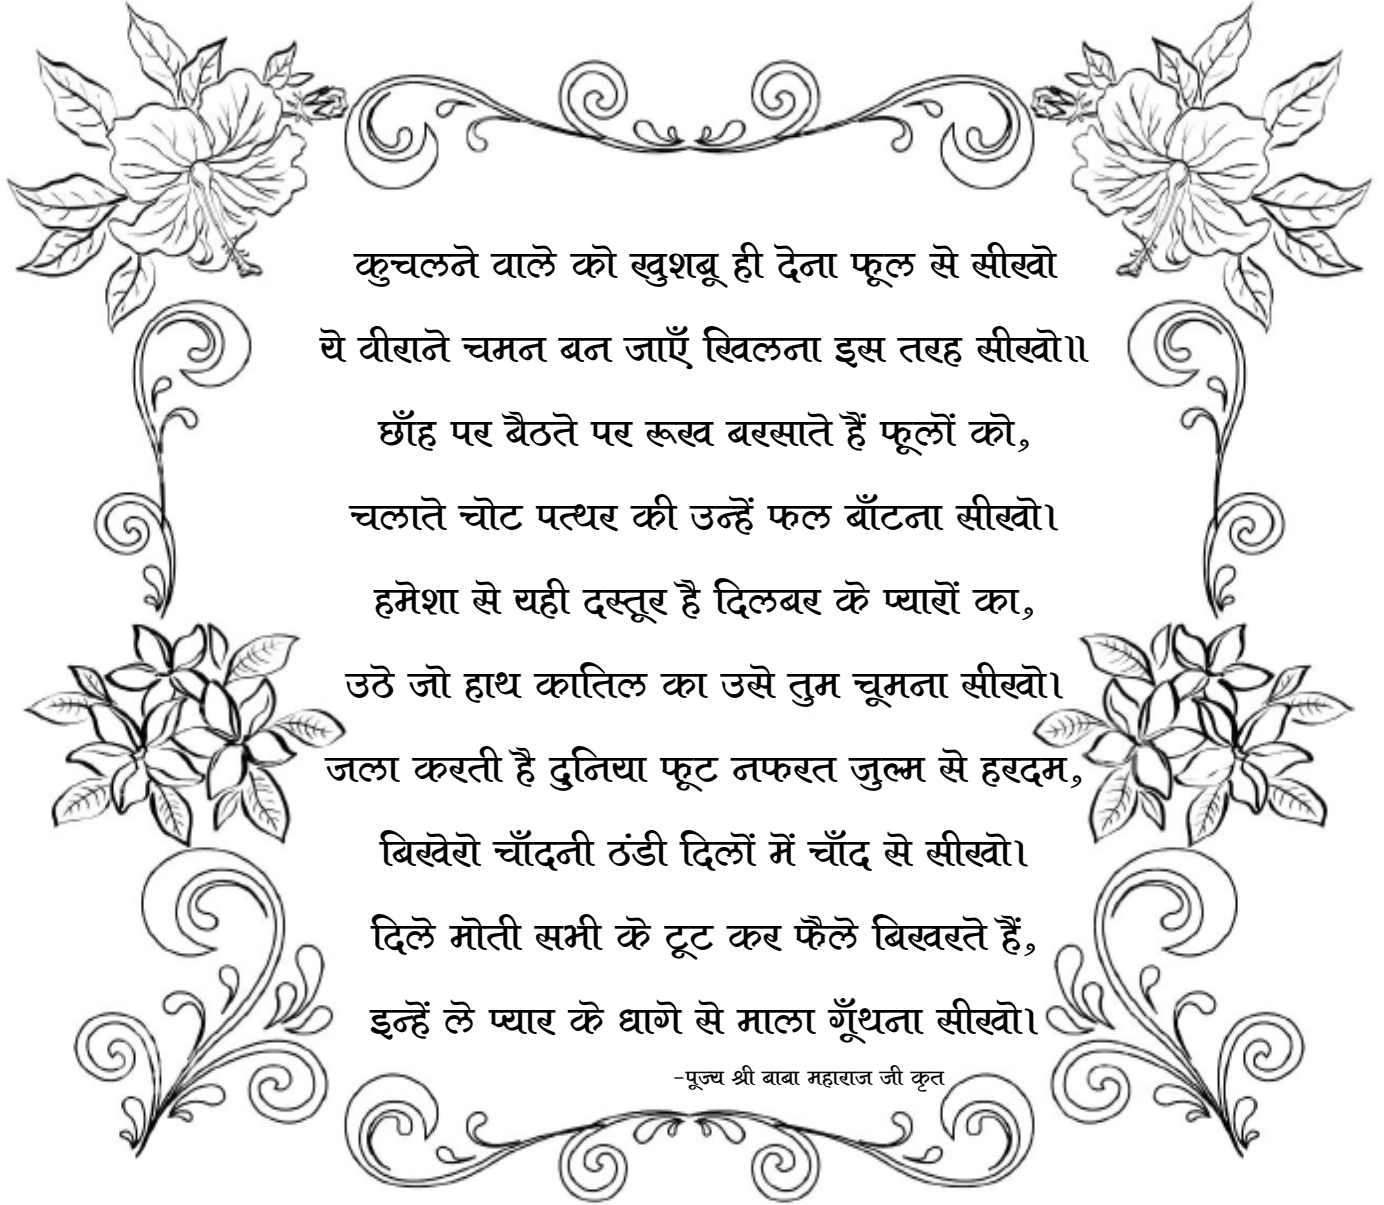 कुचलने वाले को खुशबू ही देना फूल से सीखो
ये वीराने चमन बन जाएँ खिलना इस तरह सीखो॥
छाँह पर बैठते पर रूख बरसाते हैं फूलों को,
चलाते चोट पत्थर की उन्हें फल बाँटना सीखो।
हमेशा से यही दस्तूर है दिलबर के प्यारों का,
उठे जो हाथ कातिल का उसे तुम चूमना सीखो।
जला करती है दुनिया फूट नफरत जुल्म से हरदम,
बिखेरो चाँदनी ठंडी दिलों में चाँद से सीखो।
दिले मोती सभी के टूट कर फैले बिखरते हैं,
इन्हें ले प्यार के धागे से माला गूँथना सीखो।
-पूज्य श्री बाबा महाराज जी कृत